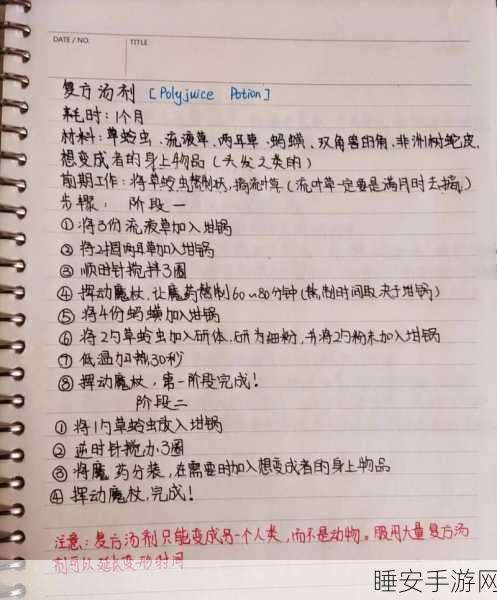 DATE / NO.
TITLE
复方汤剂 [Polyjuice Potion]
耗时：1个月
材料：草蛉虫、流液草、两耳草、蚂蟥、双角兽的角、非洲树蛇皮、
想变成者的身上物品（头发之类的）
前期工作：将草蛉虫熬制状，摘流叶草（流叶草一定要是满月时去摘）
步骤： 阶段一
①将3份流液草加入坩锅
②将2捆两耳草加入坩锅
③顺时针搅拌3圈
④挥动魔杖，让魔药熬制60~80分钟（熬制时间取决于坩锅）
⑤将4份蚂蟥加入坩锅
⑥将2勺草蛉虫加入研体，研为细粉，并将2勺粉末加入坩锅
⑦低温加热30秒
⑧挥动魔杖，第一阶段完成！
阶段二
①将1勺草蛉虫放入坩锅
②逆时针搅办3圈
③将魔药分装，在需要时加入想变成者的身上物品
④挥动魔杖，完成！
注意：复方汤剂只能变成另一个人类，而不是动物。服用大量复方汤
剂可以延长变形时间
睡安手游网